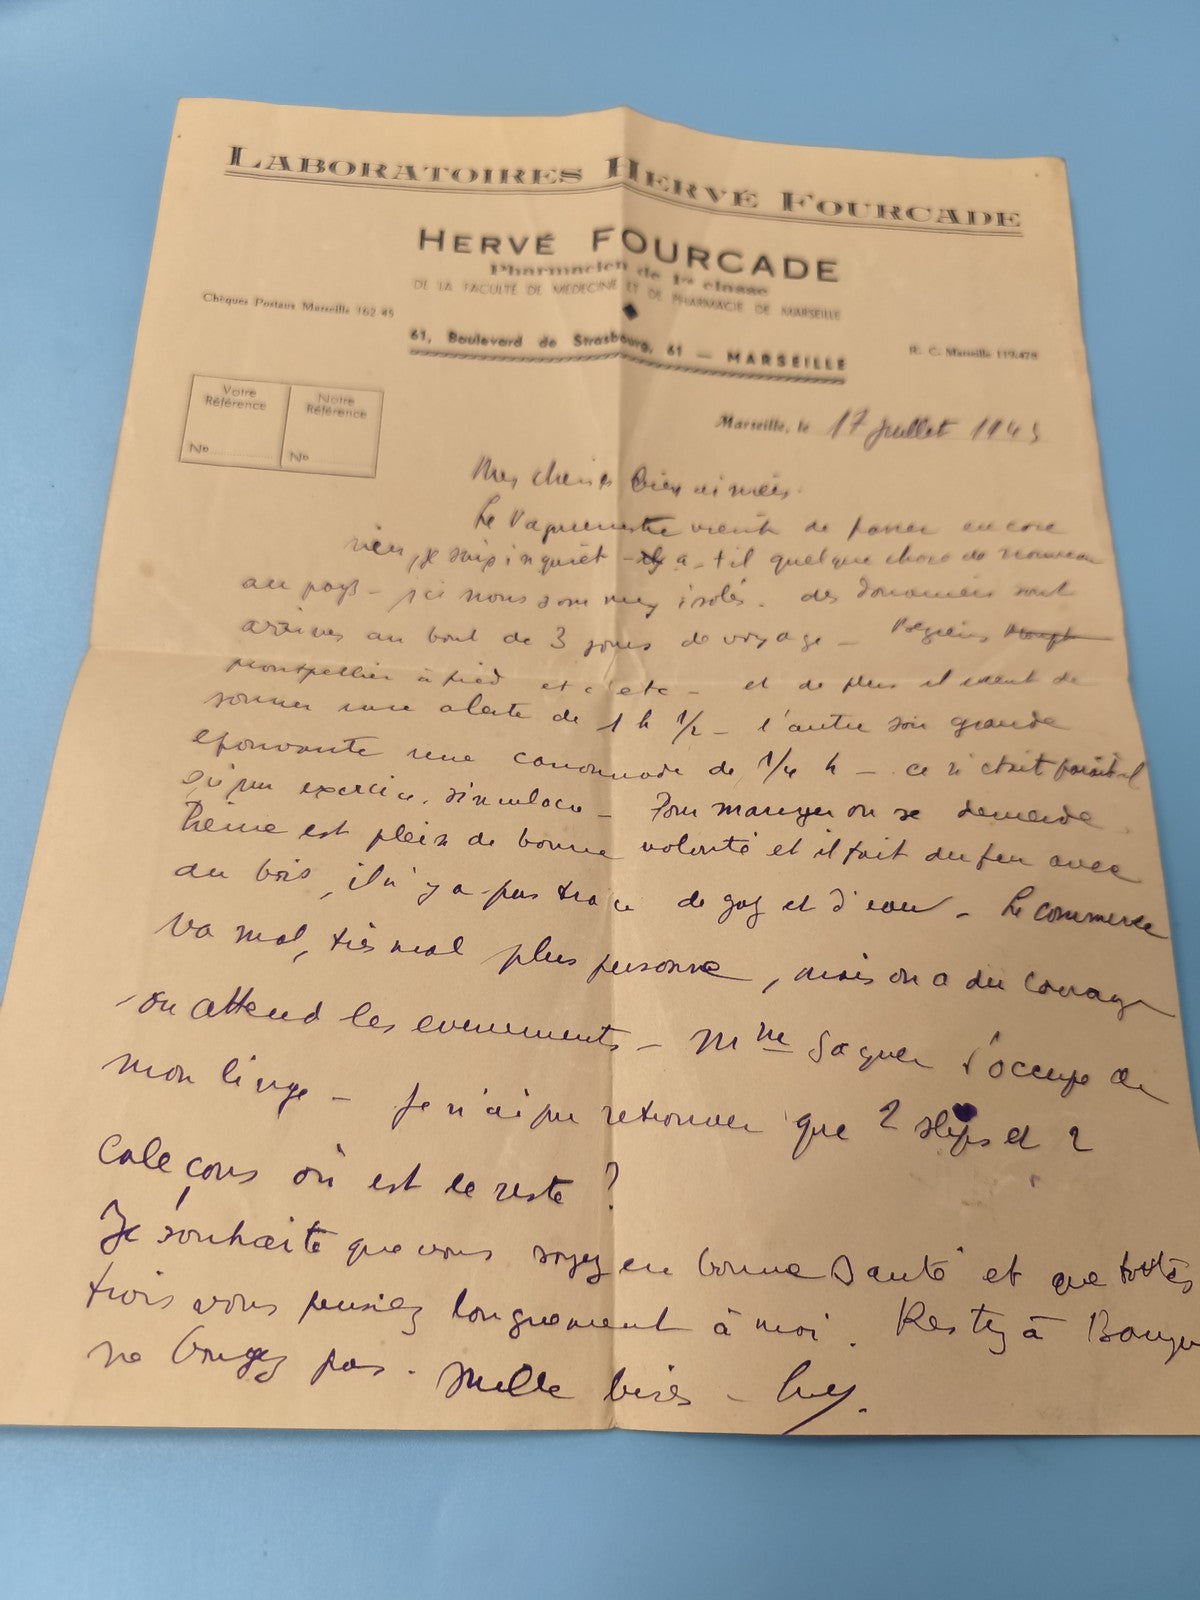 LABORATOIRES HERVÉ FOURCADE
HERVÉ FOURCADE
Pharmacien de 1re classe
DE LA FACULTÉ DE MÉDECINE ET DE PHARMACIE DE MARSEILLE
Chèques Postaux Marseille 162 45
61, Boulevard de Strasbourg, 61 — MARSEILLE
R. C. Marseille 119.478
Votre Référence
Notre Référence
No
No
Marseille, le 17 juillet 194
Mes chéries bien aimées.
Le Vaguemestre vient de passer encore
rien, je suis inquiet - y a-t-il quelque chose de nouveau
au pays - ici nous sommes isolés. des douaniers sont
arrivés au bout de 3 jours de voyage - Béziers
Montpellier à pied etc etc - et de plus il vient de
sonner une alerte de 1 h 1/2 - l'autre soir grande
épouvante une canonnade de 1/4 h - ce n'était parait-il
qu'un exercice, simulacre - Pour manger on se demande
est plein de bonne volonté et il fait du feu avec
du bois, il n'y a pas trace de gaz et d'eau - Le commerce
va mal, très mal plus personne, mais on a du courage
on attend les evenements - Mme s'occupe de
mon linge - Je n'ai pu retrouver que 2 slips et 2
caleçons où est le reste ?
Je souhaite que vous soyez en bonne santé et que toutes
trois vous pensiez longuement à moi. Restez à
ne bougez pas. Mille bises -